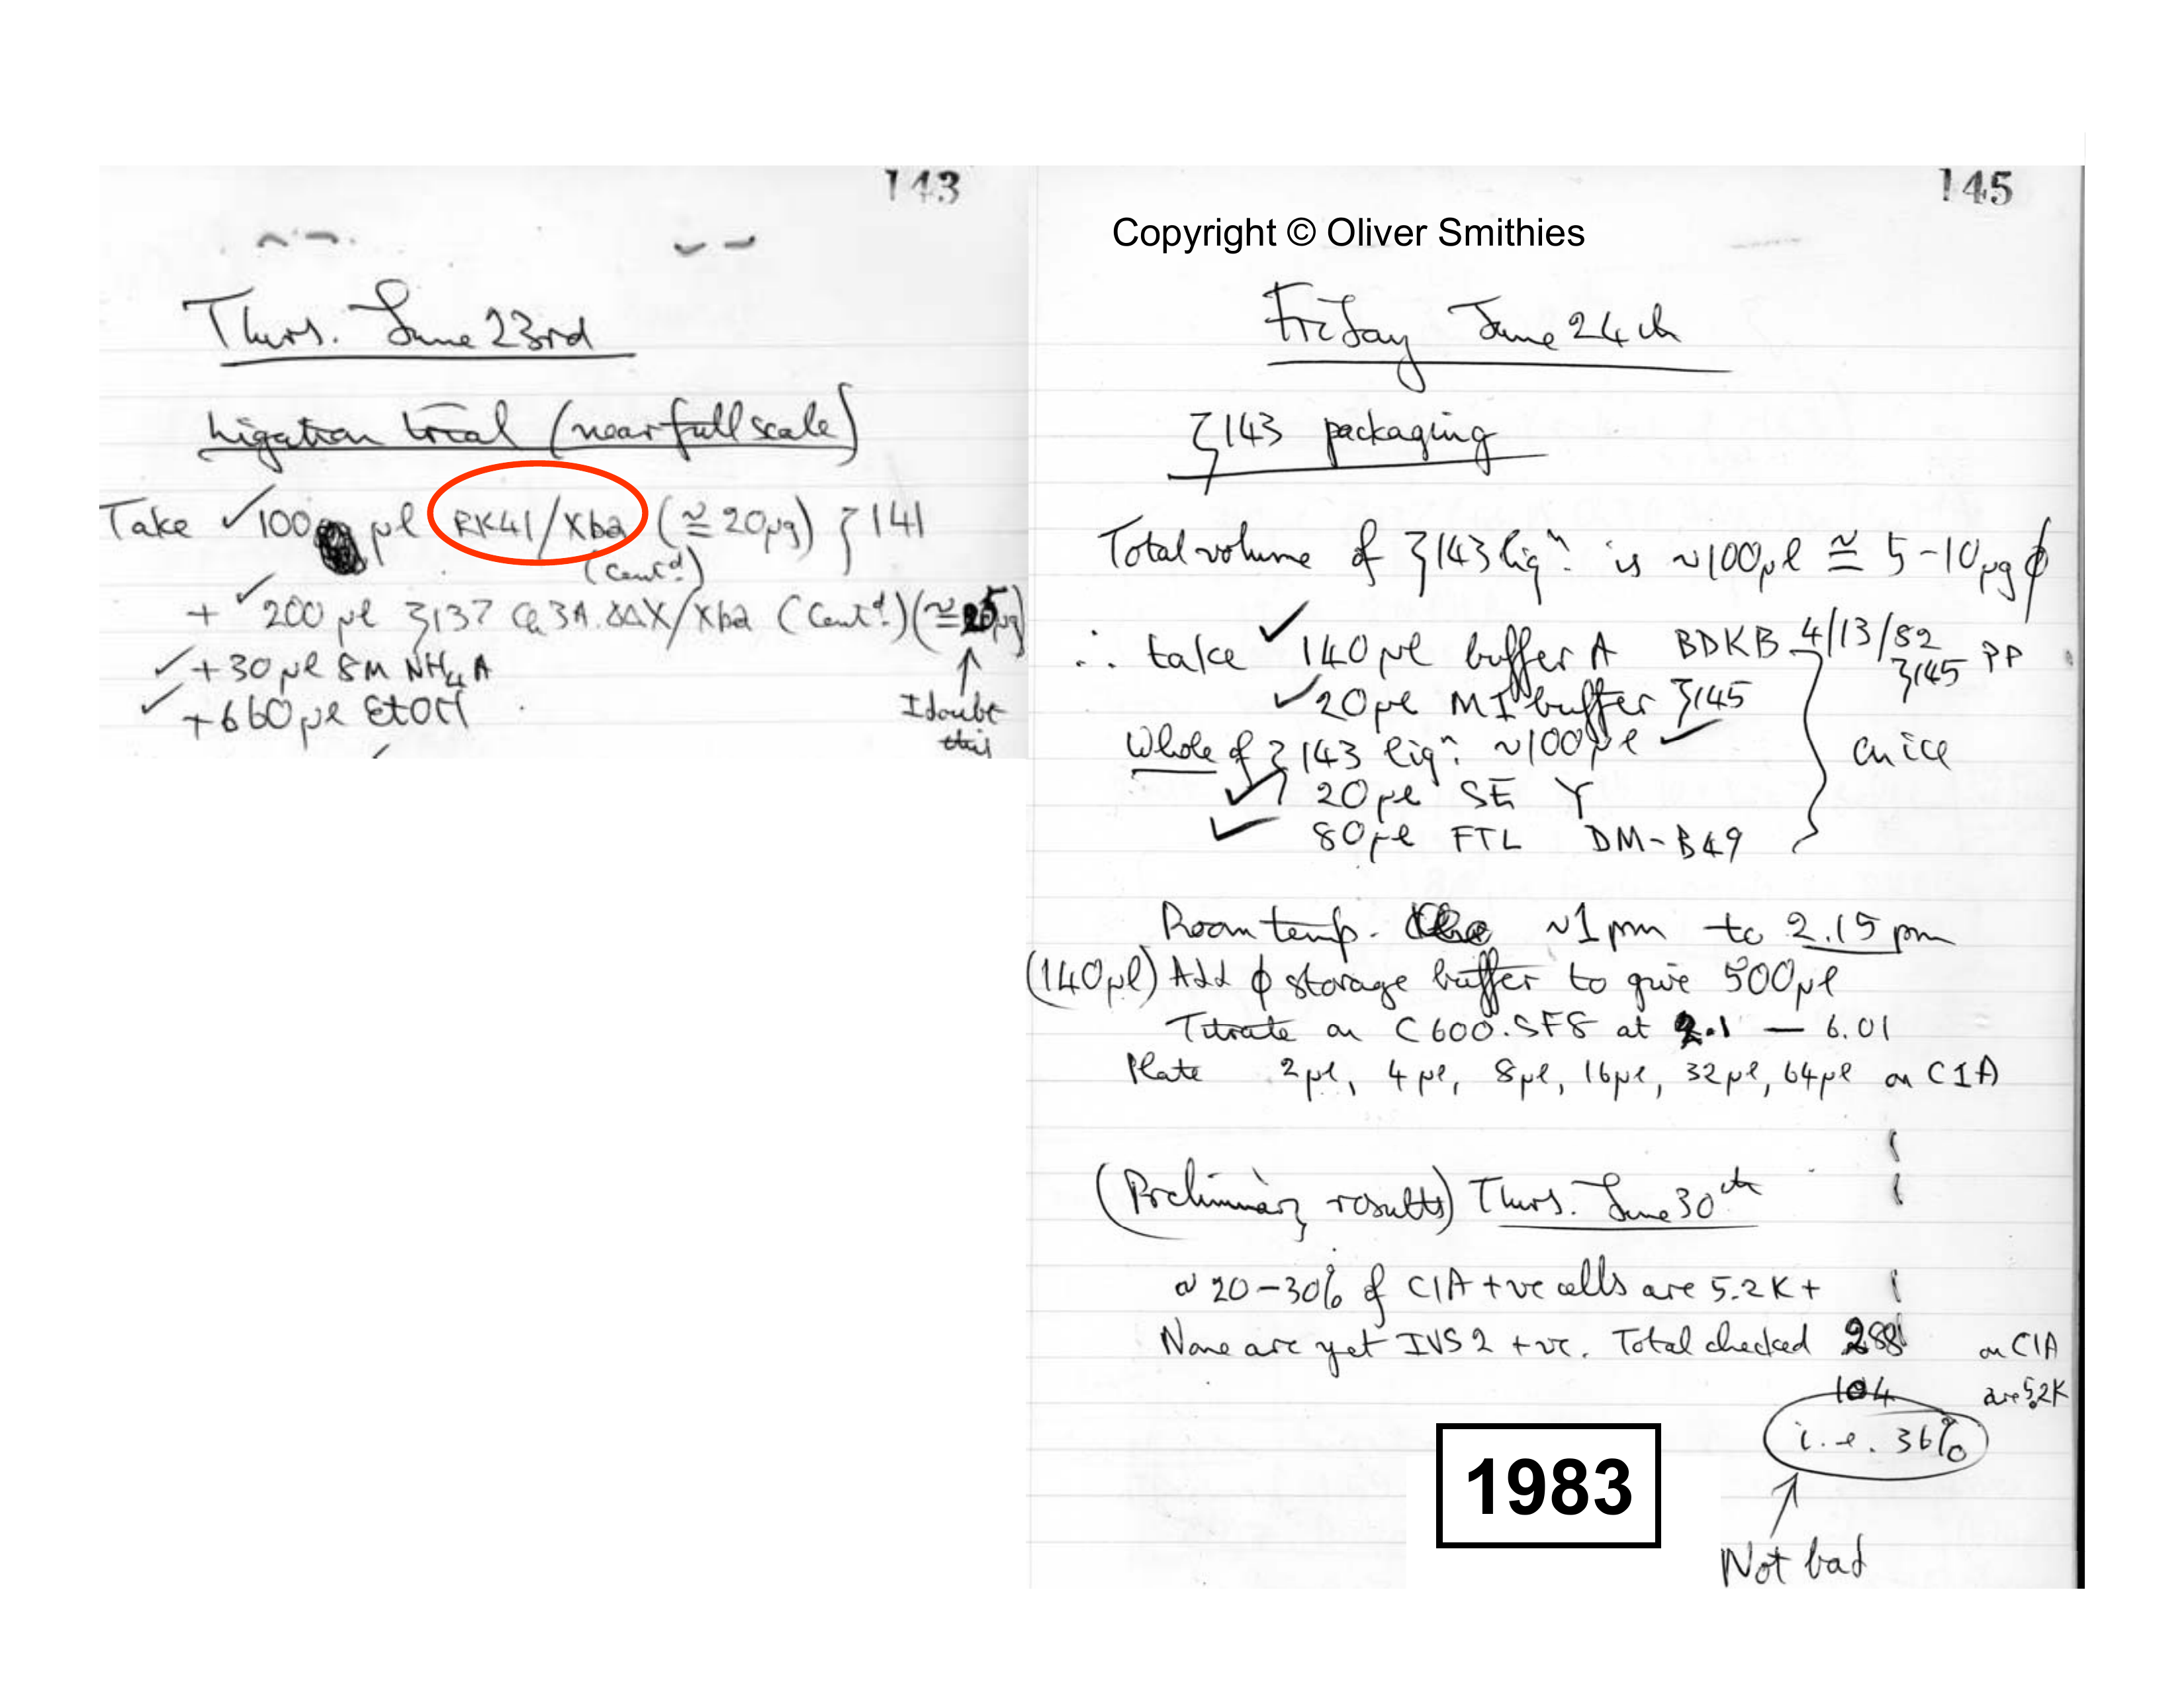 143
Thurs. June 23rd
Ligation trial (near full scale)
Take ✓100 µl RK41/Xba (≅ 20µg) ʒ 141
(Cent^d.)
+ ✓200 µl ʒ137 Ca3A.ΔΔX/Xba (Cent^d.) (≅ 5µg)
✓ +30 µl 8M NH4A
✓ +660 µl EtOH
↑
I doubt
this
145
Copyright © Oliver Smithies
Friday June 24th
ʒ143 packaging
Total volume of ʒ143 lig^n. is ~100µl ≅ 5-10µg ϕ
∴ take ✓140µl buffer A BDKB 4/13/82
ʒ145 PP
✓20µl M1 buffer ʒ145
Whole of ʒ143 lig^n. ~100µl ✓
on ice
✓ 20µl SE Y
✓ 80µl FTL DM-B49
Room temp. ~1pm to 2.15pm
(140µl) Add ϕ storage buffer to give 500µl
Titrate on C600.SF8 at 2.1 — 6.01
Plate 2µl, 4µl, 8µl, 16µl, 32µl, 64µl on C1A
(Preliminary results) Thurs. June 30th
~20-30% of C1A +ve cells are 5.2K+
None are yet IVS2 +ve. Total checked 288 on C1A
104 are 5.2K
i.e. 36%
1983
Not bad